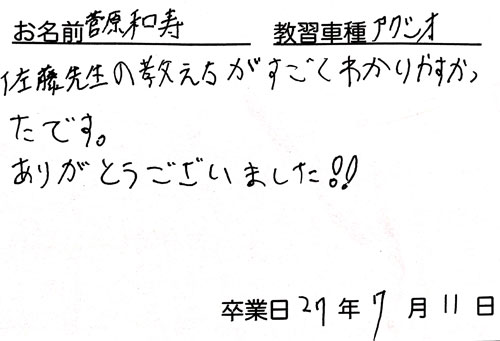 お名前 菅原和寿 教習車種 アクシオ
佐藤先生の教え方がすごくわかりやすかっ
たです。
ありがとうございました!!
卒業日 27 年 7 月 11 日